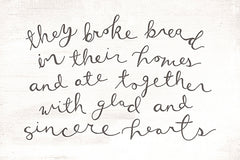 they broke bread
in their homes
and ate together
with glad and
sincere hearts